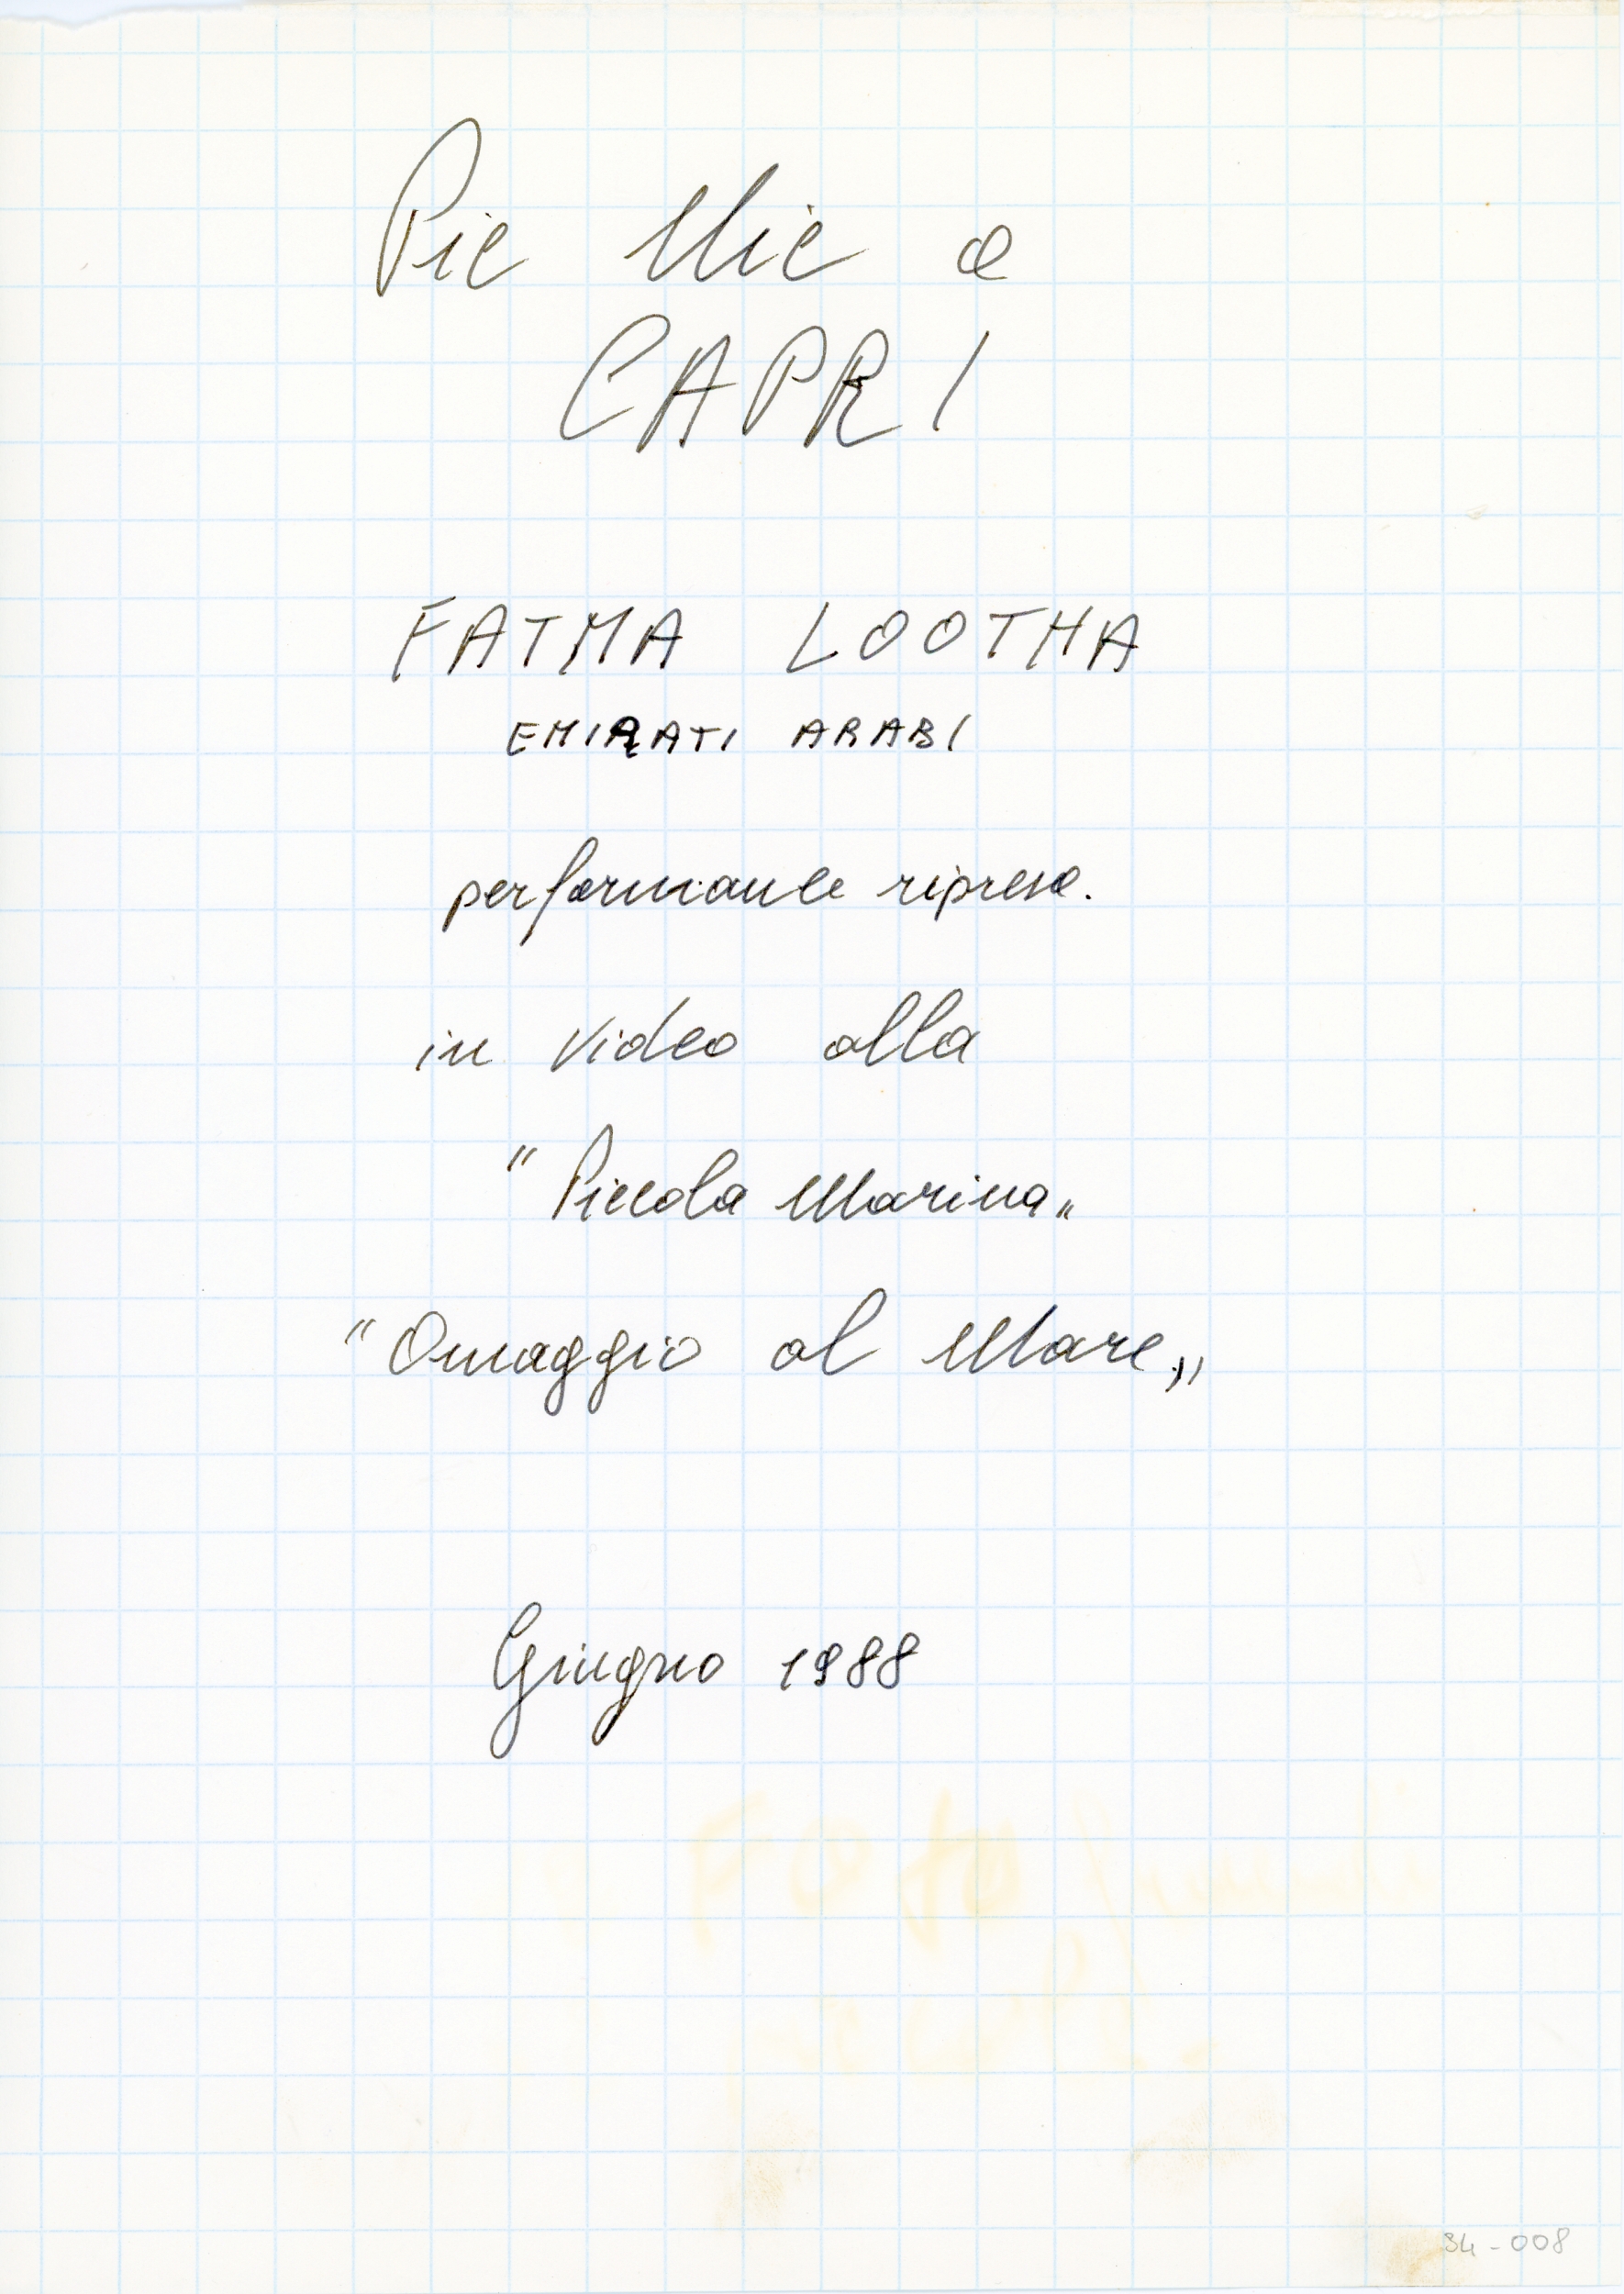 Pic Mic a
CAPRI
FATMA LOOTHA
EMIRATI ARABI
performance ripresa.
in video alla
"Piccola Marina"
"Omaggio al Mare,"
Giugno 1988
34-008